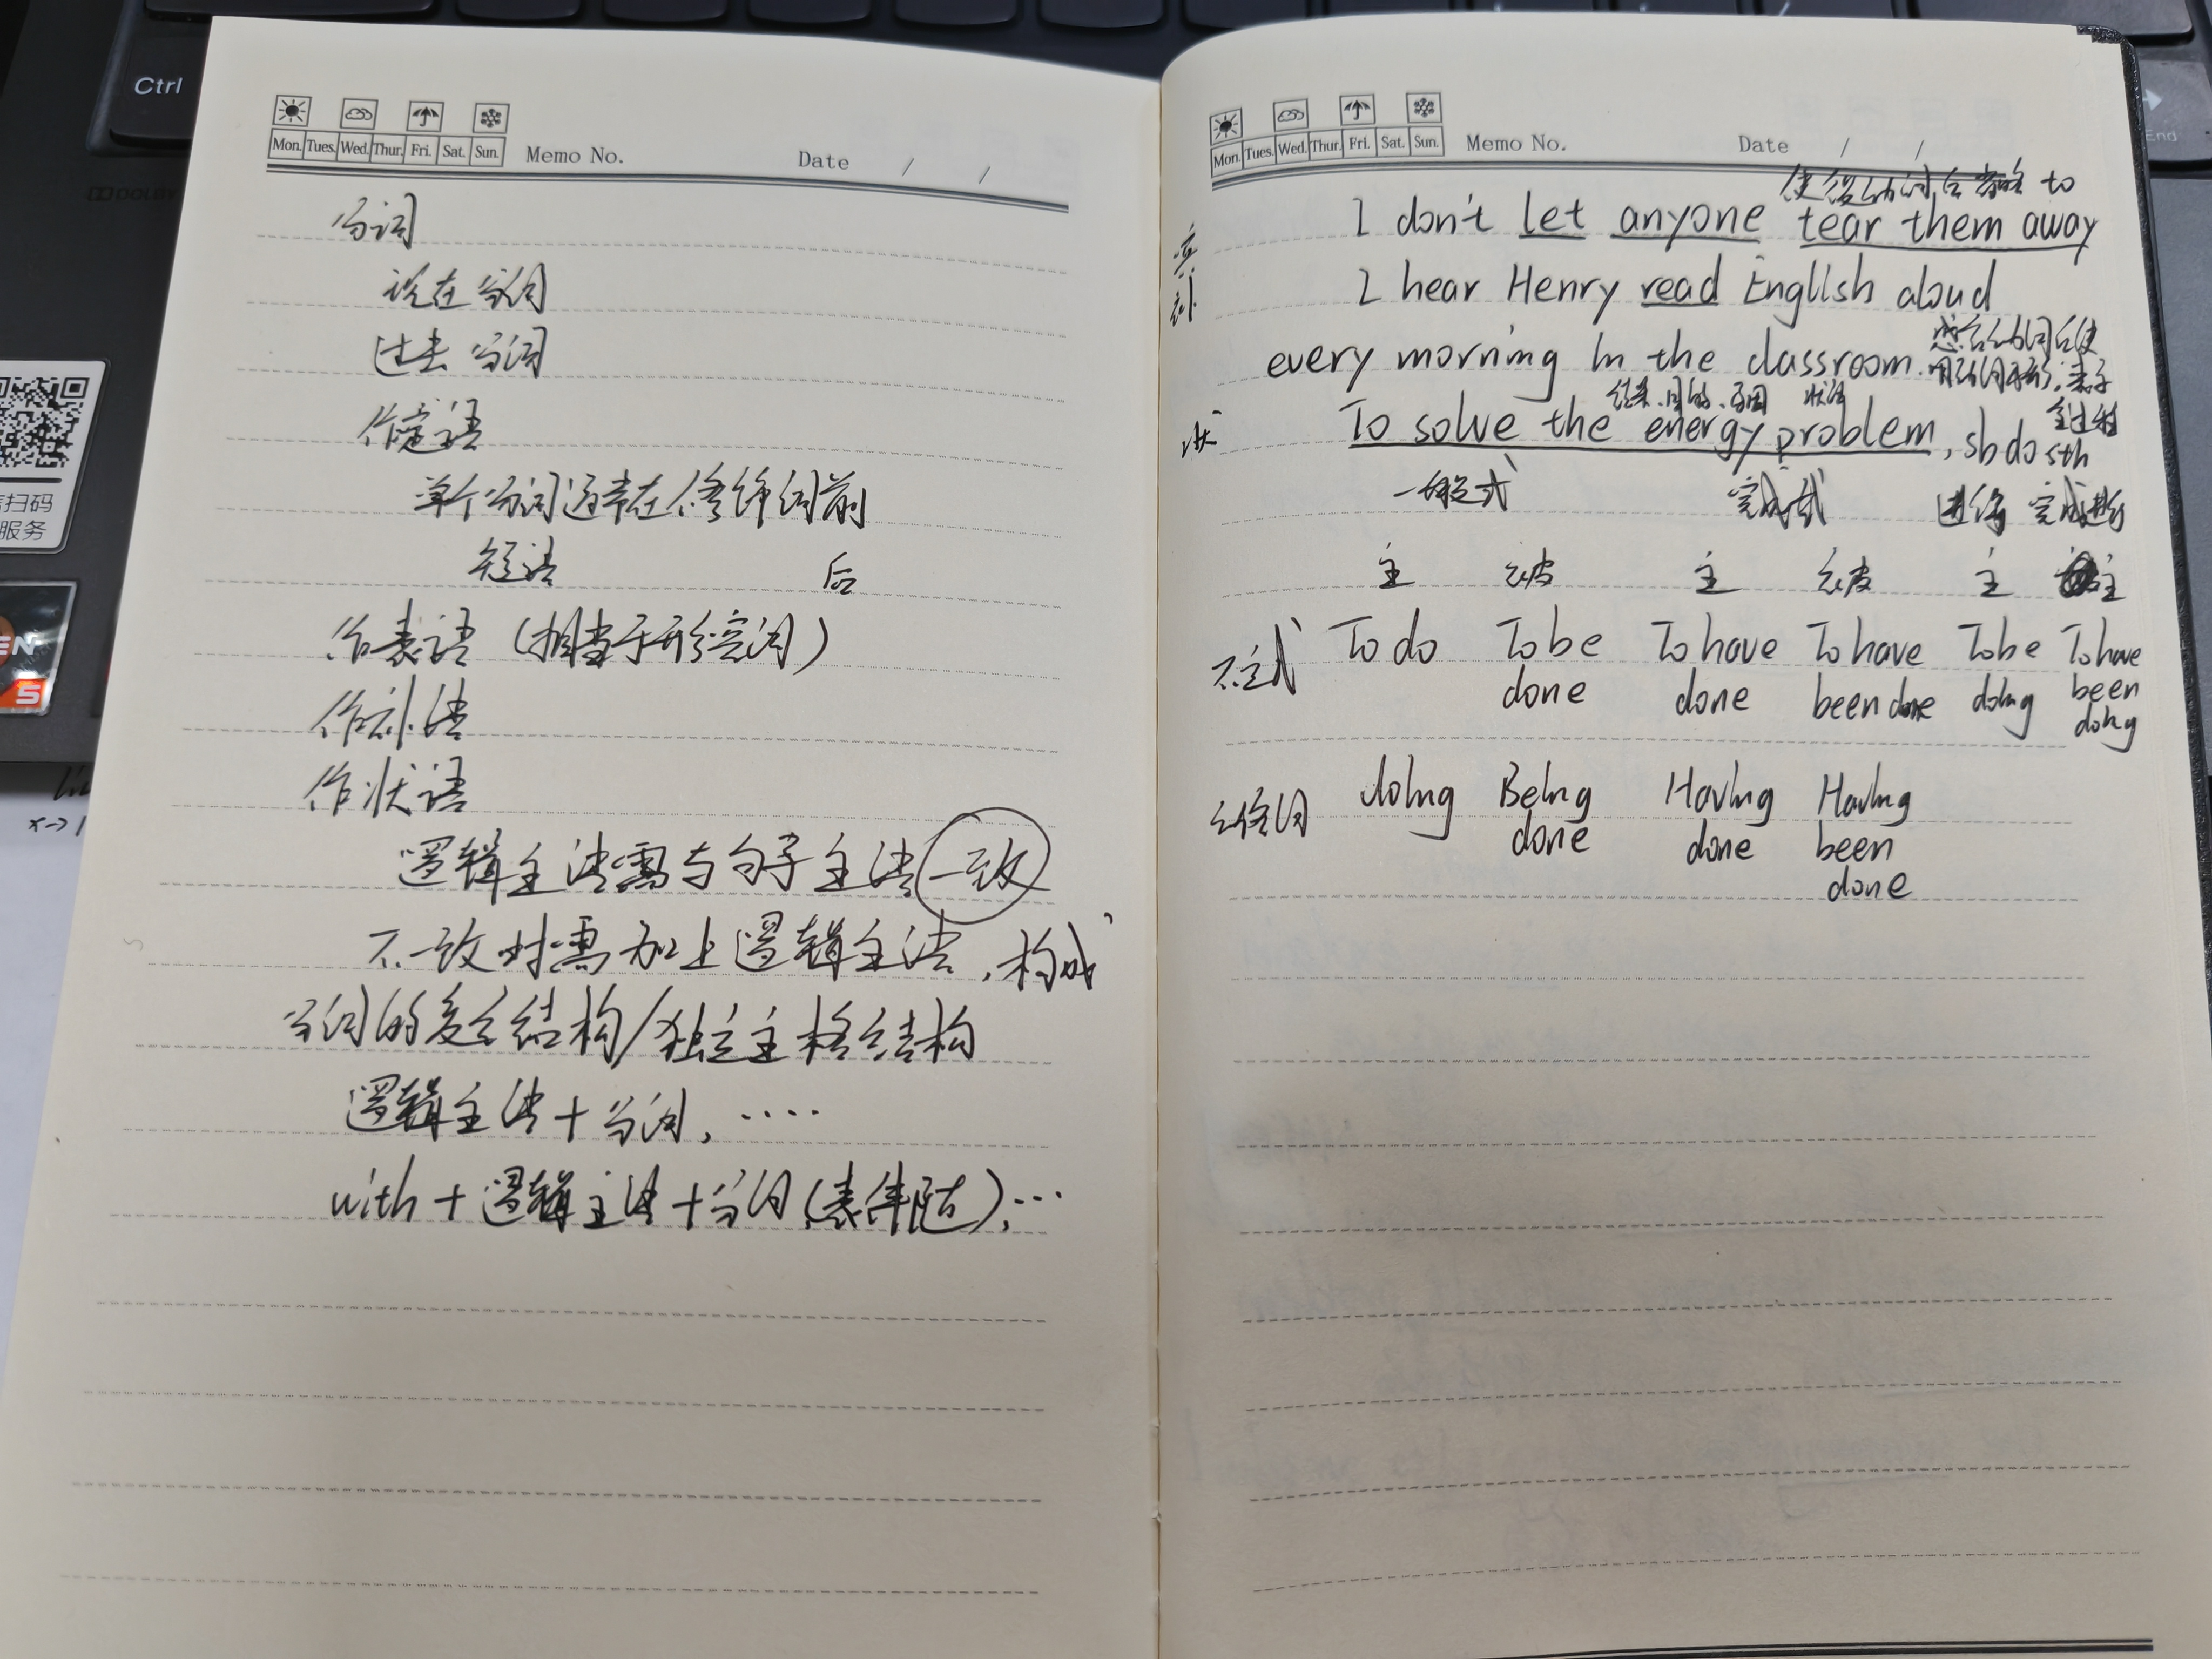 Ctrl
DOLBY
扫码
服务
EN
5
x→1
Mon. Tues. Wed. Thur. Fri. Sat. Sun. Memo No. Date / /
分词
现在分词
过去分词
作定语
单个分词通常在修饰词前
短语 后
作表语（相当于形容词）
作补语
作状语
逻辑主语需与句子主语一致
不一致时需加上逻辑主语，构成
分词的复合结构/独立主格结构
逻辑主语+分词，····
with+逻辑主语+分词（表伴随），···
End
Mon. Tues. Wed. Thur. Fri. Sat. Sun. Memo No. Date / /
使役动词后省略 to
宾补 I don't let anyone tear them away
I hear Henry read English aloud
every morning in the classroom. 感官动词后使用动词原形，表示全过程
结果、目的、原因 状语
状 To solve the energy problem, sb do sth
一般式 完成式 进行 完成进行
主 被 主 被 主 主
不定式 To do To be done To have done To have been done To be doing To have been doing
doing Being done Having done Having been done